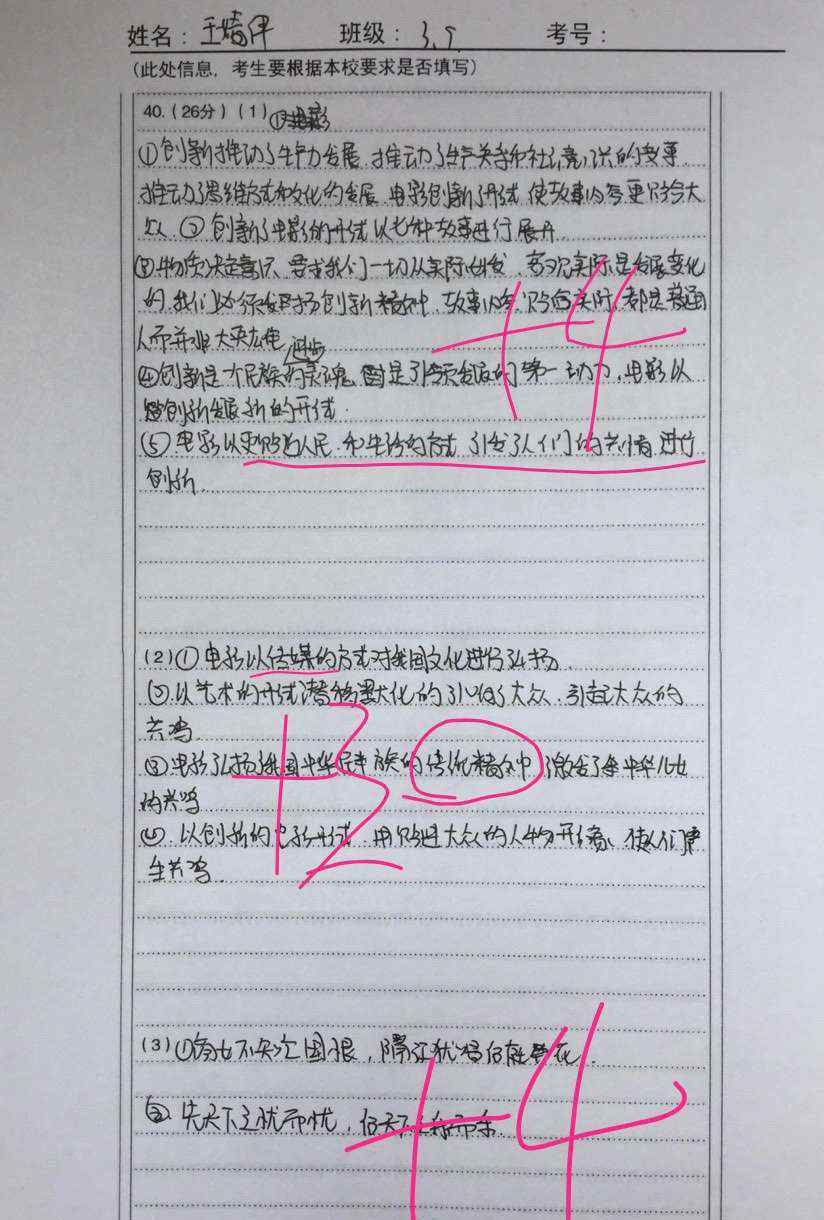 姓名：王婧伊 班级：3.9 考号：
（此处信息，考生要根据本校要求是否填写）
40.（26分）（1）①电影
①创新推动了生产力发展 推动了生产关系和社会 的变革
推动了思维方式和文化的发展 电影创新了形式 使故事内容更贴合大
众 ②创新了电影的形式 以七种故事进行展开
③物质决定意识 要求我们一切从实际出发，客观实际是发展变化
的 我们必须发扬创新精神，故事内容贴合实际 都是普通
人而并非大
④创新是一个民族进步的灵魂 是引领发展的第一动力，电影以
创新发展新的形式
⑤电影以更贴近人民 和生活的方式 引发了人们的共情 进行
创新
（2）①电影以传媒的方式对我国文化进行弘扬
②以艺术的形式潜移默化的 了大众 引起大众的
共鸣
③电影弘扬我国中华民族的传统精神 激发了 中华儿女
的共鸣
④以创新的电影形式 用贴近大众的人物形象 使人们产
生共鸣
（3）①商女不知亡国恨，隔江犹唱后庭花
② 先天下之忧而忧，后天下之乐而乐
+4
+3
2
+4